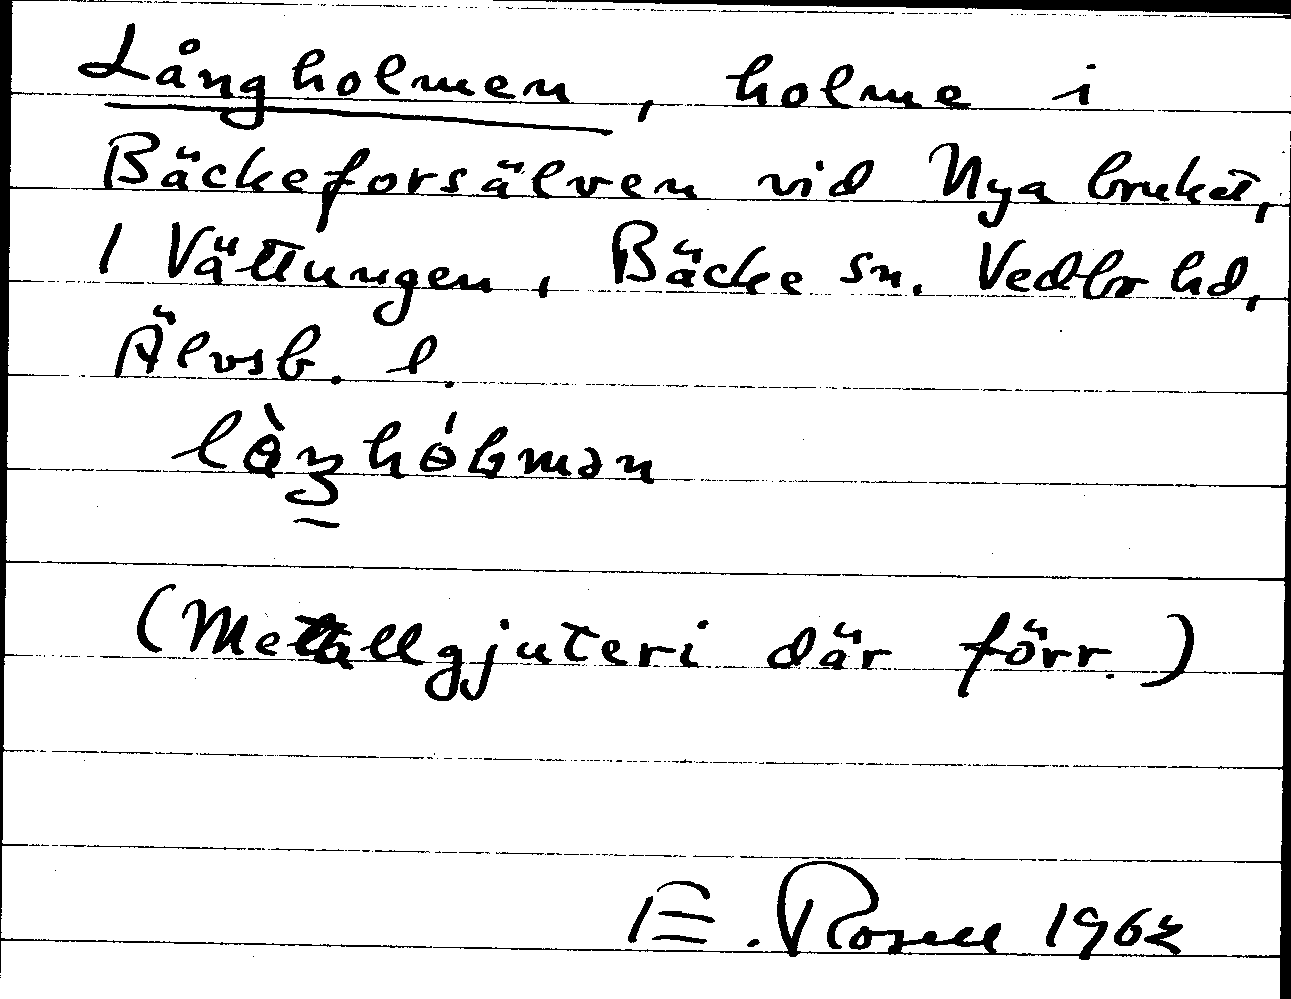 Långholmen, holme i
Bäckeforsälven vid Nya bruket,
1 Vättungen, Bäcke sn. Vedbr hd,
Älvsb. l.
(Metallgjuteri där förr.)
E. Rosell 1962